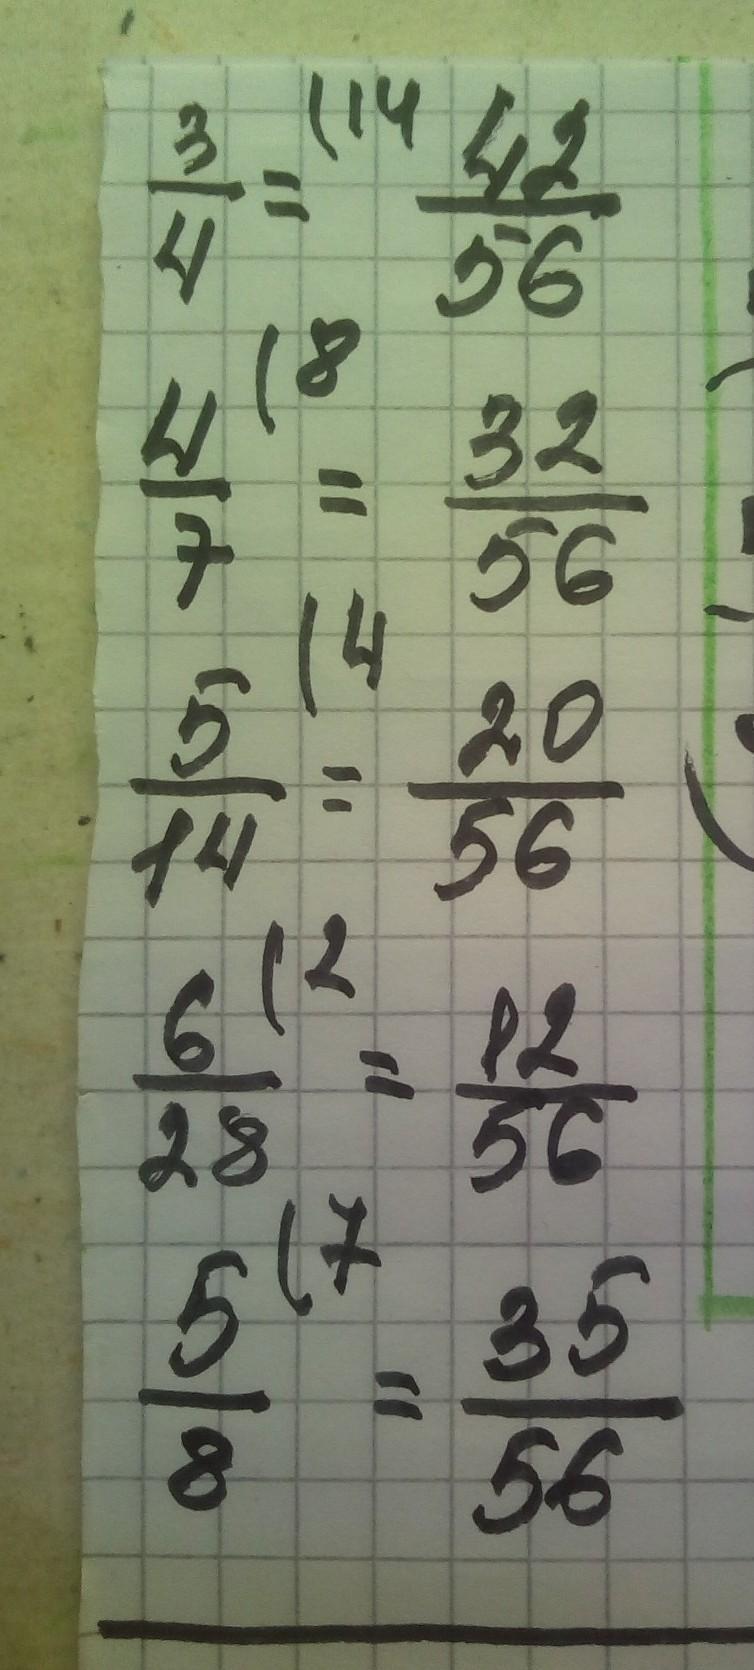 3/4 = (14 42/56
4/7 (8 = 32/56
5/14 (4 = 20/56
6/28 (2 = 12/56
5/8 (7 = 35/56